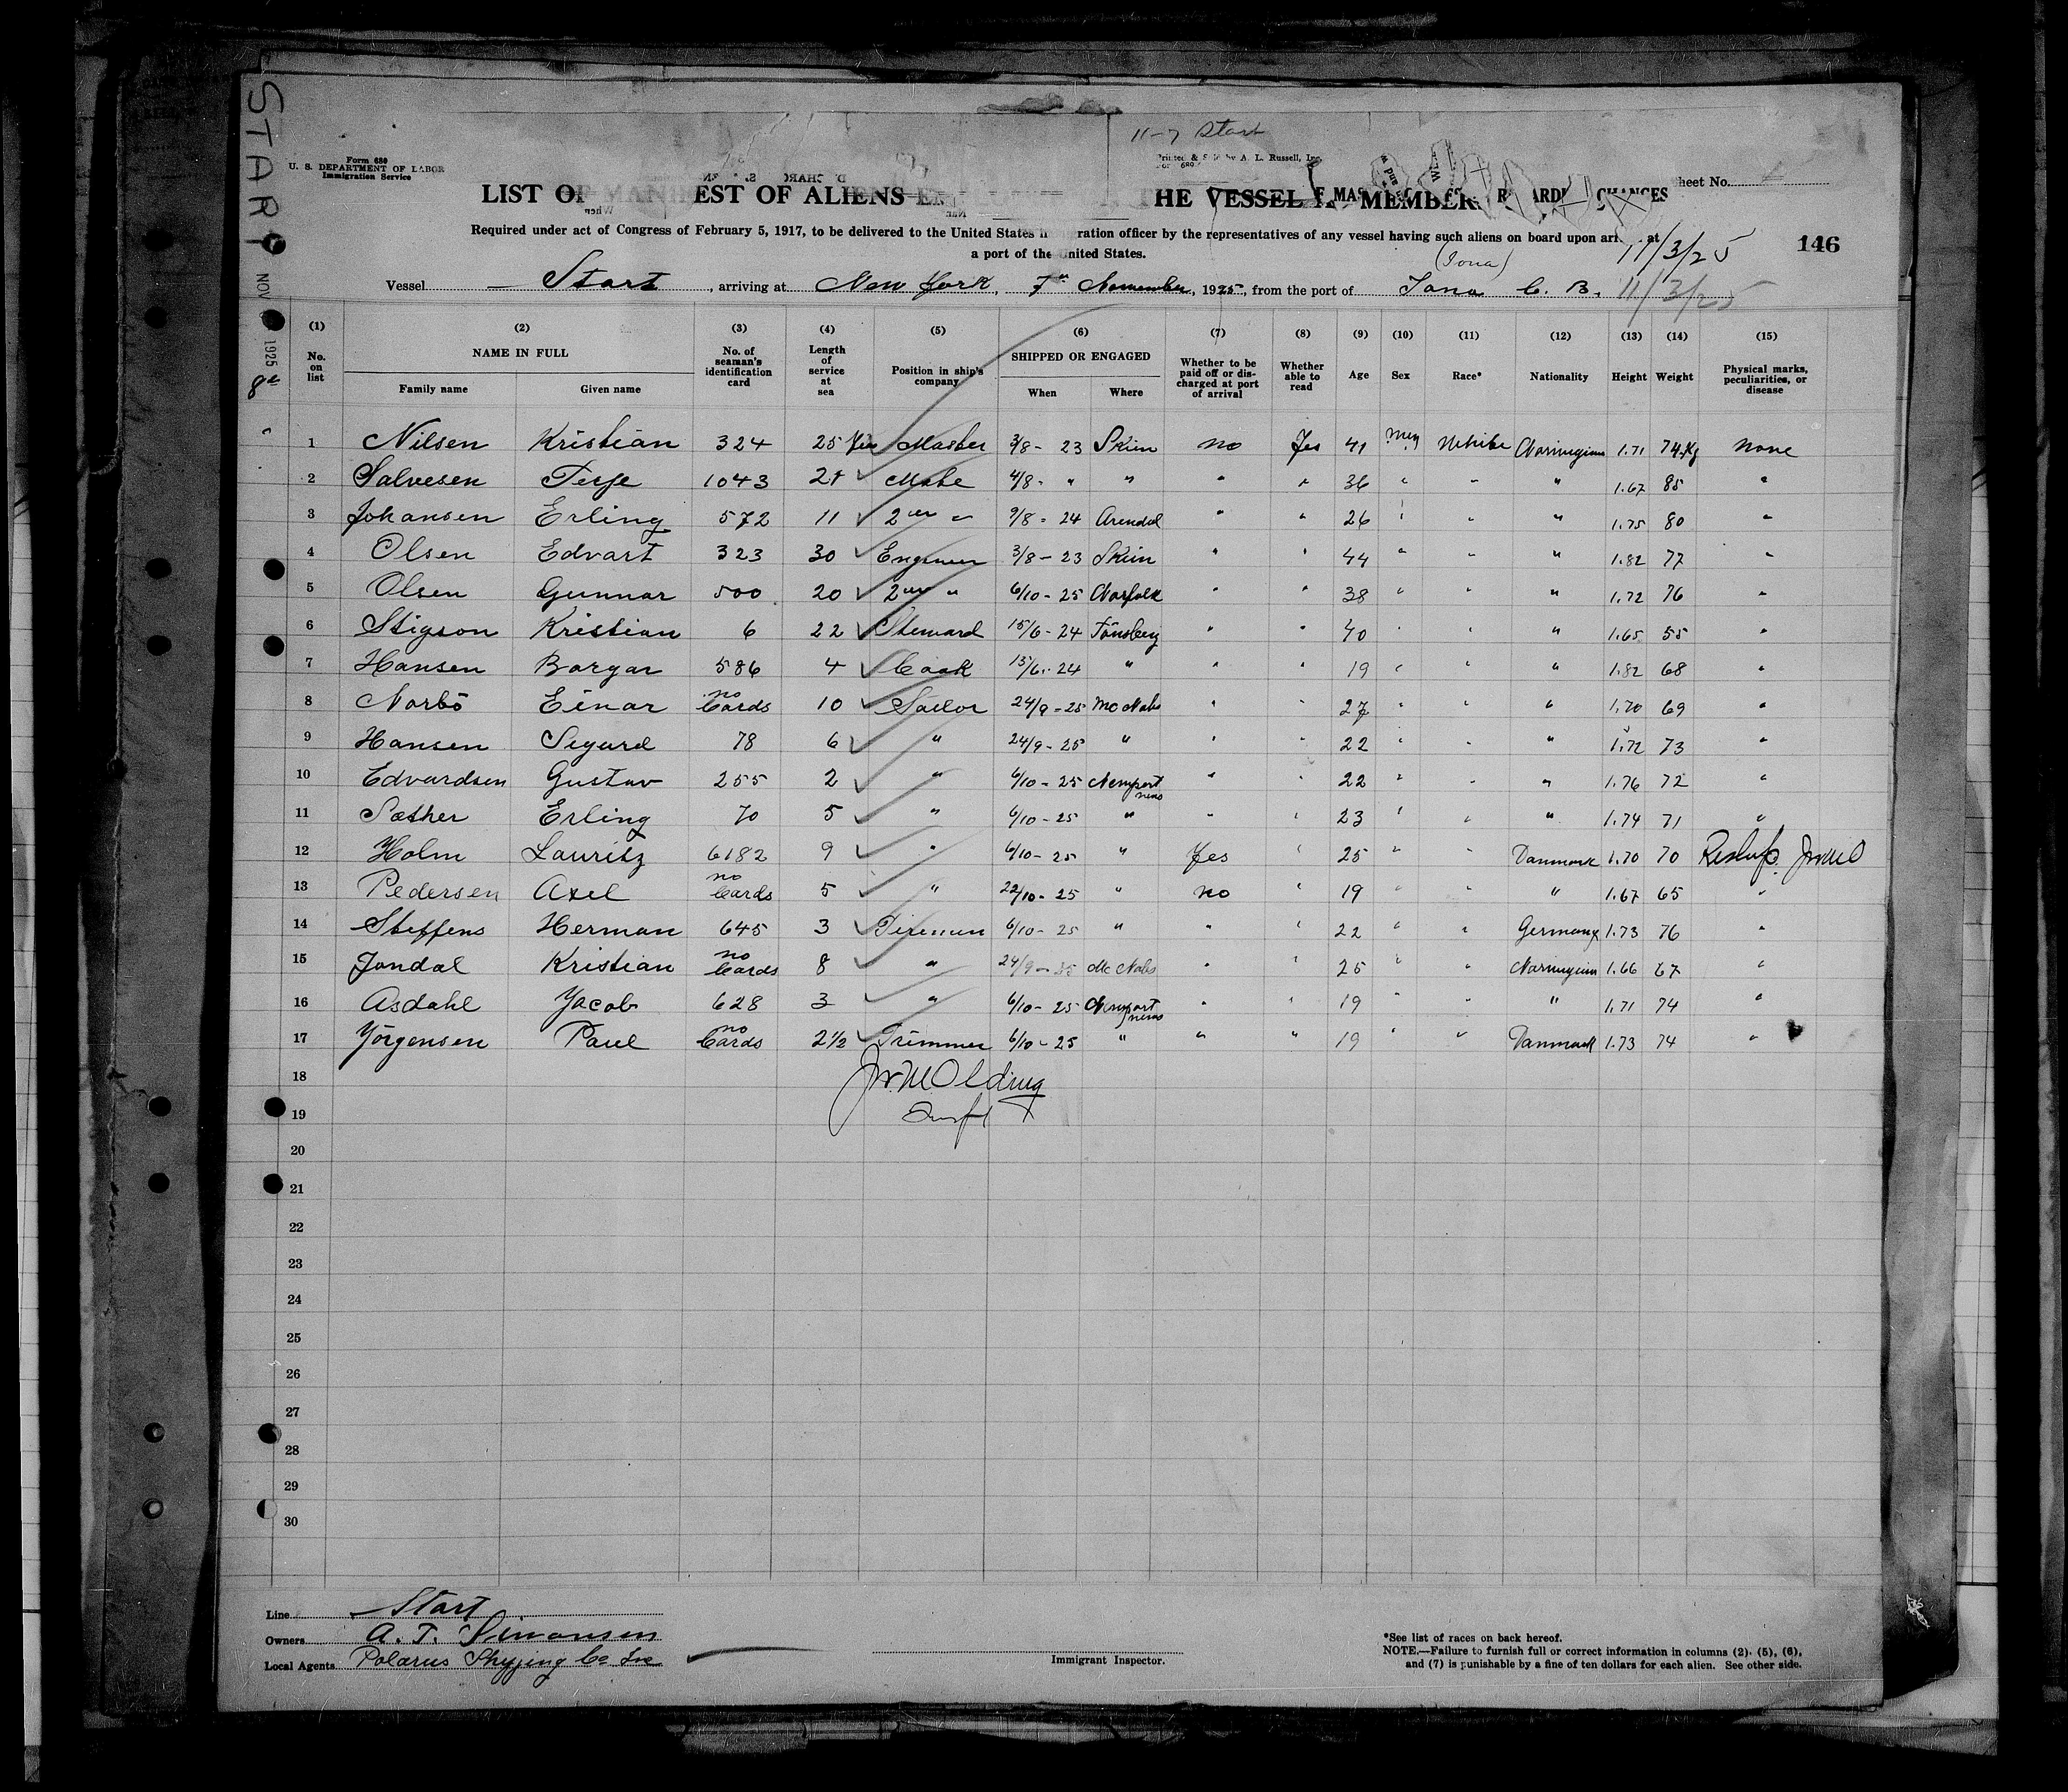 START
NOV 1925
11-7 Start
Form 680
U. S. DEPARTMENT OF LABOR
Immigration Service
Printed & Sold by A. L. Russell, Inc.
LIST OR MANIFEST OF ALIENS THE VESSEL MEMBERS
Sheet No.
Required under act of Congress of February 5, 1917, to be delivered to the United States immigration officer by the representatives of any vessel having such aliens on board upon arrival at
a port of the United States.
146
(Iona) 11/3/25
Vessel Start, arriving at New York, 7th November, 1925, from the port of Iona C. B. 11/3/25
(1) (2) (3) (4) (5) (6) (7) (8) (9) (10) (11) (12) (13) (14) (15)
No. on list NAME IN FULL Family name Given name No. of seaman's identification card Length of service at sea Position in ship's company SHIPPED OR ENGAGED When Where Whether to be paid off or discharged at port of arrival Whether able to read Age Sex Race* Nationality Height Weight Physical marks, peculiarities, or disease
1 Nilsen Kristian 324 25 Master 3/8-23 Skien no Yes 41 White Norwegian 1.71 74 Kg none
2 Salvesen Terje 1043 21 Mate 4/8- " " " " 36 " " " 1.67 85 "
3 Johansen Erling 572 11 2nd " 9/8-24 Arendal " " 26 " " " 1.75 80 "
4 Olsen Edvart 323 30 Engineer 3/8-23 Skien " " 44 " " " 1.82 77 "
5 Olsen Gunnar 500 20 2nd " 6/10-25 Norfolk " " 38 " " " 1.72 76 "
6 Stigson Kristian 6 22 Steward 15/6-24 Tönsberg " " 40 " " " 1.65 55 "
7 Hansen Borgar 586 4 Cook 15/6-24 " " " 19 " " " 1.82 68 "
8 Norbö Einar no Cards 10 Sailor 24/9-25 Mc Nabs " " 27 " " " 1.70 69 "
9 Hansen Sigurd 78 6 " 24/9-25 " " " 22 " " " 1.72 73 "
10 Edvardsen Gustav 255 2 " 6/10-25 Newport news " " 22 " " " 1.76 72 "
11 Sæther Erling 70 5 " 6/10-25 " " " 23 " " " 1.74 71 "
12 Holm Lauritz 6182 9 " 6/10-25 " Yes " 25 " " Danmark 1.70 70
13 Pedersen Axel no Cards 5 " 22/10-25 " no " 19 " " " 1.67 65 "
14 Steffens Herman 645 3 Firemen 6/10-25 " " " 22 " " Germany 1.73 76 "
15 Jondal Kristian no Cards 8 " 24/9-25 Mc Nabs " " 25 " " Norwegian 1.66 67 "
16 Asdahl Yacob 628 3 " 6/10-25 Newport news " " 19 " " " 1.71 74 "
17 Yörgensen Paul no Cards 2 1/2 Trimmer 6/10-25 " " " 19 " " Danmark 1.73 74 "
18
19
20
21
22
23
24
25
26
27
28
29
30
Line Start
Owners A. T. Simonsen
Local Agents Polarus Co Inc
Immigrant Inspector.
*See list of races on back hereof.
NOTE.—Failure to furnish full or correct information in columns (2), (5), (6),
and (7) is punishable by a fine of ten dollars for each alien. See other side.